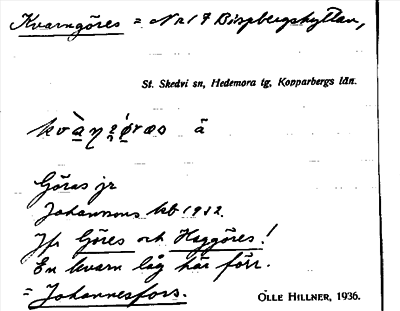 Kvarngöres = No 17 Bispbergshyttan,
St. Skedvi sn, Hedemora tg, Kopparbergs län.
ä
Göras jr
Johannsons kb 1932.
Jfr Göres och Haggöres!
En kvarn låg här förr.
= Johannesfors.
OLLE HILLNER, 1936.